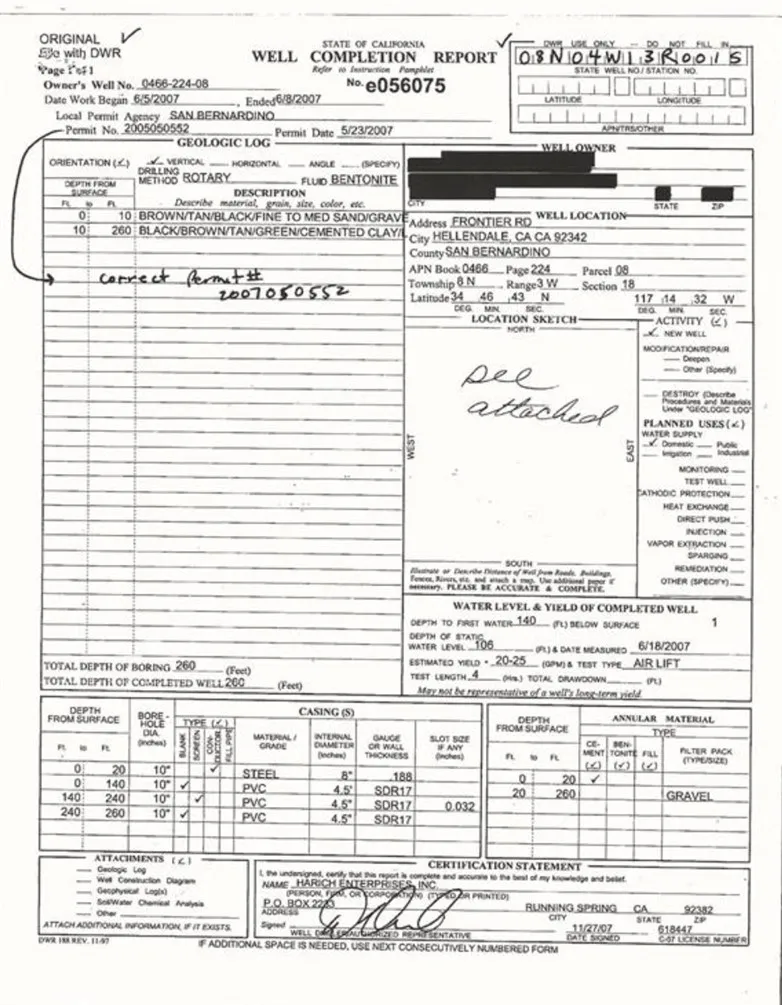 ORIGINAL
File with DWR
Page 1 of 1
Owner's Well No. 0466-224-08
Date Work Began 6/5/2007, Ended 6/8/2007
Local Permit Agency SAN BERNARDINO
Permit No. 2005050552 Permit Date 5/23/2007
STATE OF CALIFORNIA
WELL COMPLETION REPORT
Refer to Instruction Pamphlet
No. e056075
DWR USE ONLY — DO NOT FILL IN
08N04W13R001S
STATE WELL NO./STATION NO.
LATITUDE LONGITUDE
APN/TRS/OTHER
GEOLOGIC LOG
ORIENTATION (✓) ✓ VERTICAL HORIZONTAL ANGLE (SPECIFY)
DRILLING METHOD ROTARY FLUID BENTONITE
DEPTH FROM SURFACE
DESCRIPTION
Ft. to Ft. Describe material, grain, size, color, etc.
0 10 BROWN/TAN/BLACK/FINE TO MED SAND/GRAVE
10 260 BLACK/BROWN/TAN/GREEN/CEMENTED CLAY/
correct Permit #
2007050552
TOTAL DEPTH OF BORING 260 (Feet)
TOTAL DEPTH OF COMPLETED WELL 260 (Feet)
WELL OWNER
CITY STATE ZIP
WELL LOCATION
Address FRONTIER RD
City HELLENDALE, CA CA 92342
County SAN BERNARDINO
APN Book 0466 Page 224 Parcel 08
Township 8 N Range 3 W Section 18
Latitude 34 46 43 N 117 14 32 W
DEG. MIN. SEC. DEG. MIN. SEC.
LOCATION SKETCH
NORTH
See
attached
WEST
EAST
SOUTH
Illustrate or Describe Distance of Well from Roads, Buildings,
Fences, Rivers, etc. and attach a map. Use additional paper if
necessary. PLEASE BE ACCURATE & COMPLETE.
ACTIVITY (✓)
✓ NEW WELL
MODIFICATION/REPAIR
Deepen
Other (Specify)
DESTROY (Describe
Procedures and Materials
Under "GEOLOGIC LOG"
PLANNED USES (✓)
WATER SUPPLY
✓ Domestic Public
Irrigation Industrial
MONITORING
TEST WELL
CATHODIC PROTECTION
HEAT EXCHANGE
DIRECT PUSH
INJECTION
VAPOR EXTRACTION
SPARGING
REMEDIATION
OTHER (SPECIFY)
WATER LEVEL & YIELD OF COMPLETED WELL
DEPTH TO FIRST WATER 140 (Ft.) BELOW SURFACE 1
DEPTH OF STATIC
WATER LEVEL 106 (Ft.) & DATE MEASURED 6/18/2007
ESTIMATED YIELD * 20-25 (GPM) & TEST TYPE AIR LIFT
TEST LENGTH 4 (Hrs.) TOTAL DRAWDOWN (Ft.)
May not be representative of a well's long-term yield.
DEPTH FROM SURFACE
Ft. to Ft.
BORE-HOLE DIA. (Inches)
CASING (S)
TYPE (✓)
BLANK SCREEN CON-DUCTOR FILL PIPE
MATERIAL / GRADE
INTERNAL DIAMETER (Inches)
GAUGE OR WALL THICKNESS
SLOT SIZE IF ANY (Inches)
0 20 10" ✓ STEEL 8" .188
0 140 10" ✓ PVC 4.5' SDR17
140 240 10" ✓ PVC 4.5" SDR17 0.032
240 260 10" ✓ PVC 4.5" SDR17
DEPTH FROM SURFACE
Ft. to Ft.
ANNULAR MATERIAL
TYPE
CE-MENT (✓) BEN-TONITE (✓) FILL (✓) FILTER PACK (TYPE/SIZE)
0 20 ✓
20 260 GRAVEL
ATTACHMENTS (✓)
Geologic Log
Well Construction Diagram
Geophysical Log(s)
Soil/Water Chemical Analysis
Other
ATTACH ADDITIONAL INFORMATION, IF IT EXISTS.
CERTIFICATION STATEMENT
I, the undersigned, certify that this report is complete and accurate to the best of my knowledge and belief.
NAME HARICH ENTERPRISES, INC.
(PERSON, FIRM, OR CORPORATION) (TYPED OR PRINTED)
P.O. BOX 2233 RUNNING SPRING CA 92382
ADDRESS CITY STATE ZIP
Signed 11/27/07 618447
WELL DRILLER/AUTHORIZED REPRESENTATIVE DATE SIGNED C-57 LICENSE NUMBER
DWR 188 REV. 11-97
IF ADDITIONAL SPACE IS NEEDED, USE NEXT CONSECUTIVELY NUMBERED FORM